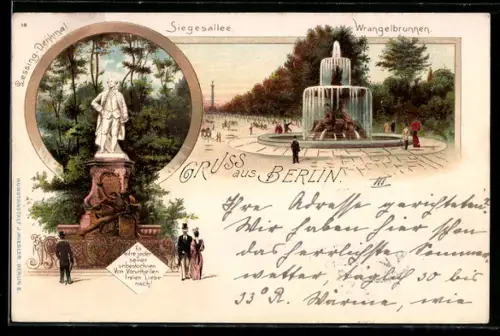 18
Lessing-Denkmal
Siegesallee.
Wrangelbrunnen.
GRUSS
aus BERLIN.
III
Es
eifre jeder
seiner
unbestochnen
Von Vorurtheilen
freien Liebe
nach!
KUNSTANSTALT J. MIESLER, BERLIN S.
Ihre Adresse gerichteten?
Wir haben hier schon
das herrlichste Sommer-
wetter, täglich 30 bis
33°R. Wärme, wie